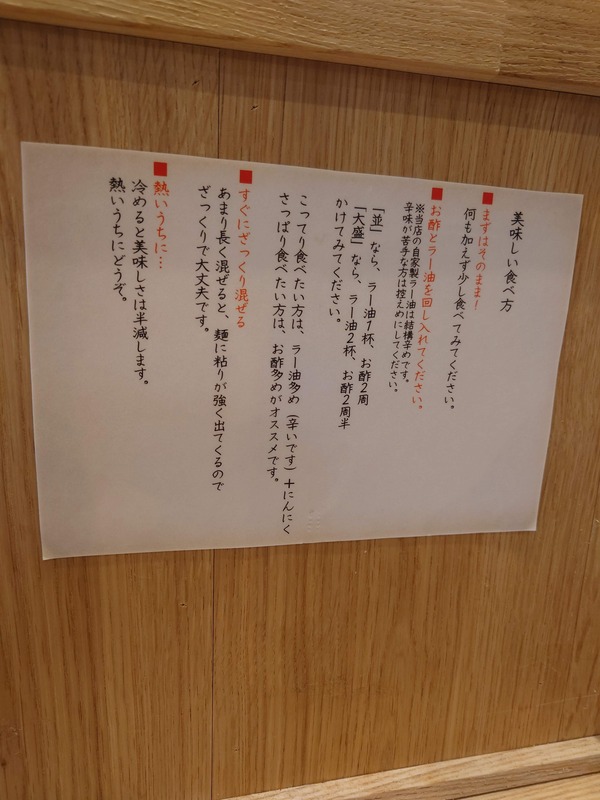 美味しい食べ方
■まずはそのまま!
何も加えず少し食べてみてください。
■お酢とラー油を回し入れてください。
※当店の自家製ラー油は結構辛めです。
辛味が苦手な方は控えめにしてください。
「並」なら、ラー油1杯、お酢2周
「大盛」なら、ラー油2杯、お酢2周半
かけてみてください。
こってり食べたい方は、ラー油多め(辛いです)+にんにく
さっぱり食べたい方は、お酢多めがオススメです。
■すぐにざっくり混ぜる
あまり長く混ぜると、麺に粘りが強く出てくるので
ざっくりで大丈夫です。
■熱いうちに…
冷めると美味しさは半減します。
熱いうちにどうぞ。